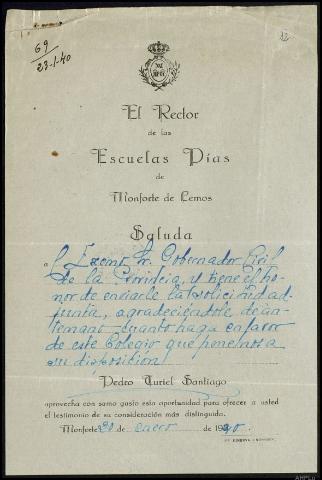 69
23-1-40
El Rector
de las
Escuelas Pías
de
Monforte de Lemos
Saluda
a l Excmo Sr. Gobernador Civil
de la Provincia, y tiene el ho-
nor de enviarle la solicitud ad-
junta, agradeciéndole de an-
temano cuanto haga en favor
de este Colegio que ponemos a
su disposición
Pedro Turiel Santiago
aprovecha con sumo gusto esta oportunidad para ofrecer a usted
el testimonio de su consideración más distinguida.
Monforte 20 de enero de 1940.